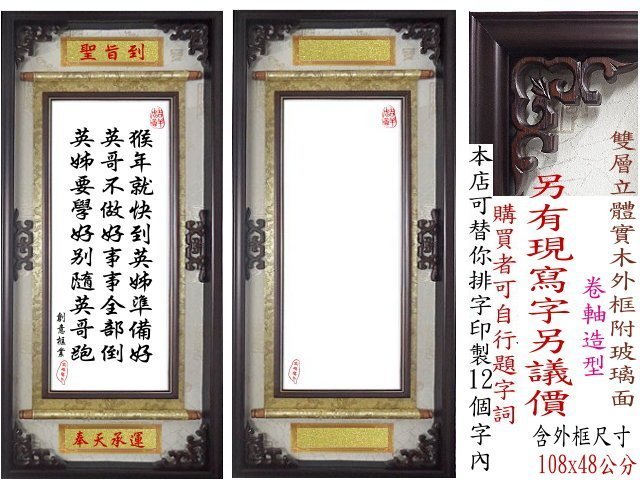 聖旨到
猴年就快到英姊準備好
英哥不做好事事全部倒
英姊要學好別隨英哥跑
創意框業
奉天承運
雙層立體實木外框附玻璃面
卷軸造型
另有現寫字另議價
購買者可自行題字詞
本店可替你排字印製12個字內
含外框尺寸
108x48公分